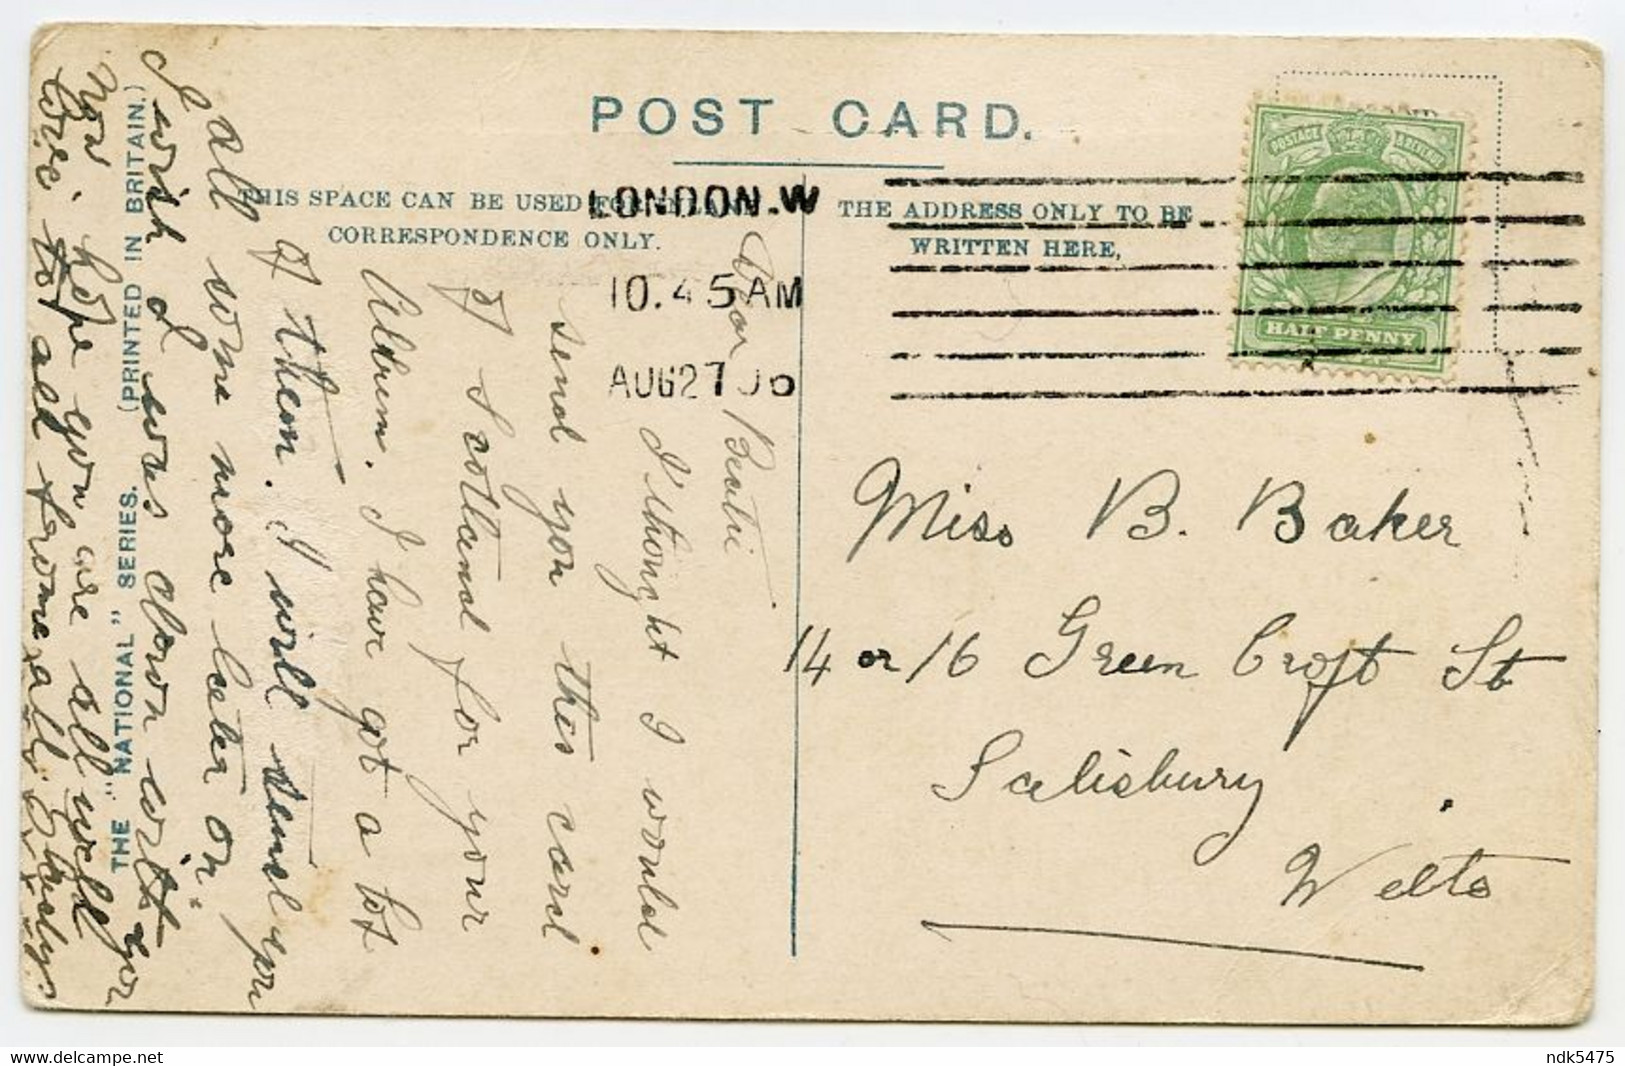 POST CARD.
THIS SPACE CAN BE USED FOR
CORRESPONDENCE ONLY.
THE ADDRESS ONLY TO BE
WRITTEN HERE,
LONDON.W
10.45AM
AUG27 06
POSTAGE
HALF PENNY
Miss B. Baker
14 or 16 Green Croft St
Salisbury
Wilts
Dear Beatie
I thought I would
send you this card
of Scotland for your
Album. I have got a lot
of them. I will send you
all some more later on.
I wish I was down with you
now hope you are all well
love to all from all
THE "NATIONAL" SERIES. (PRINTED IN BRITAIN.)
ndk5475